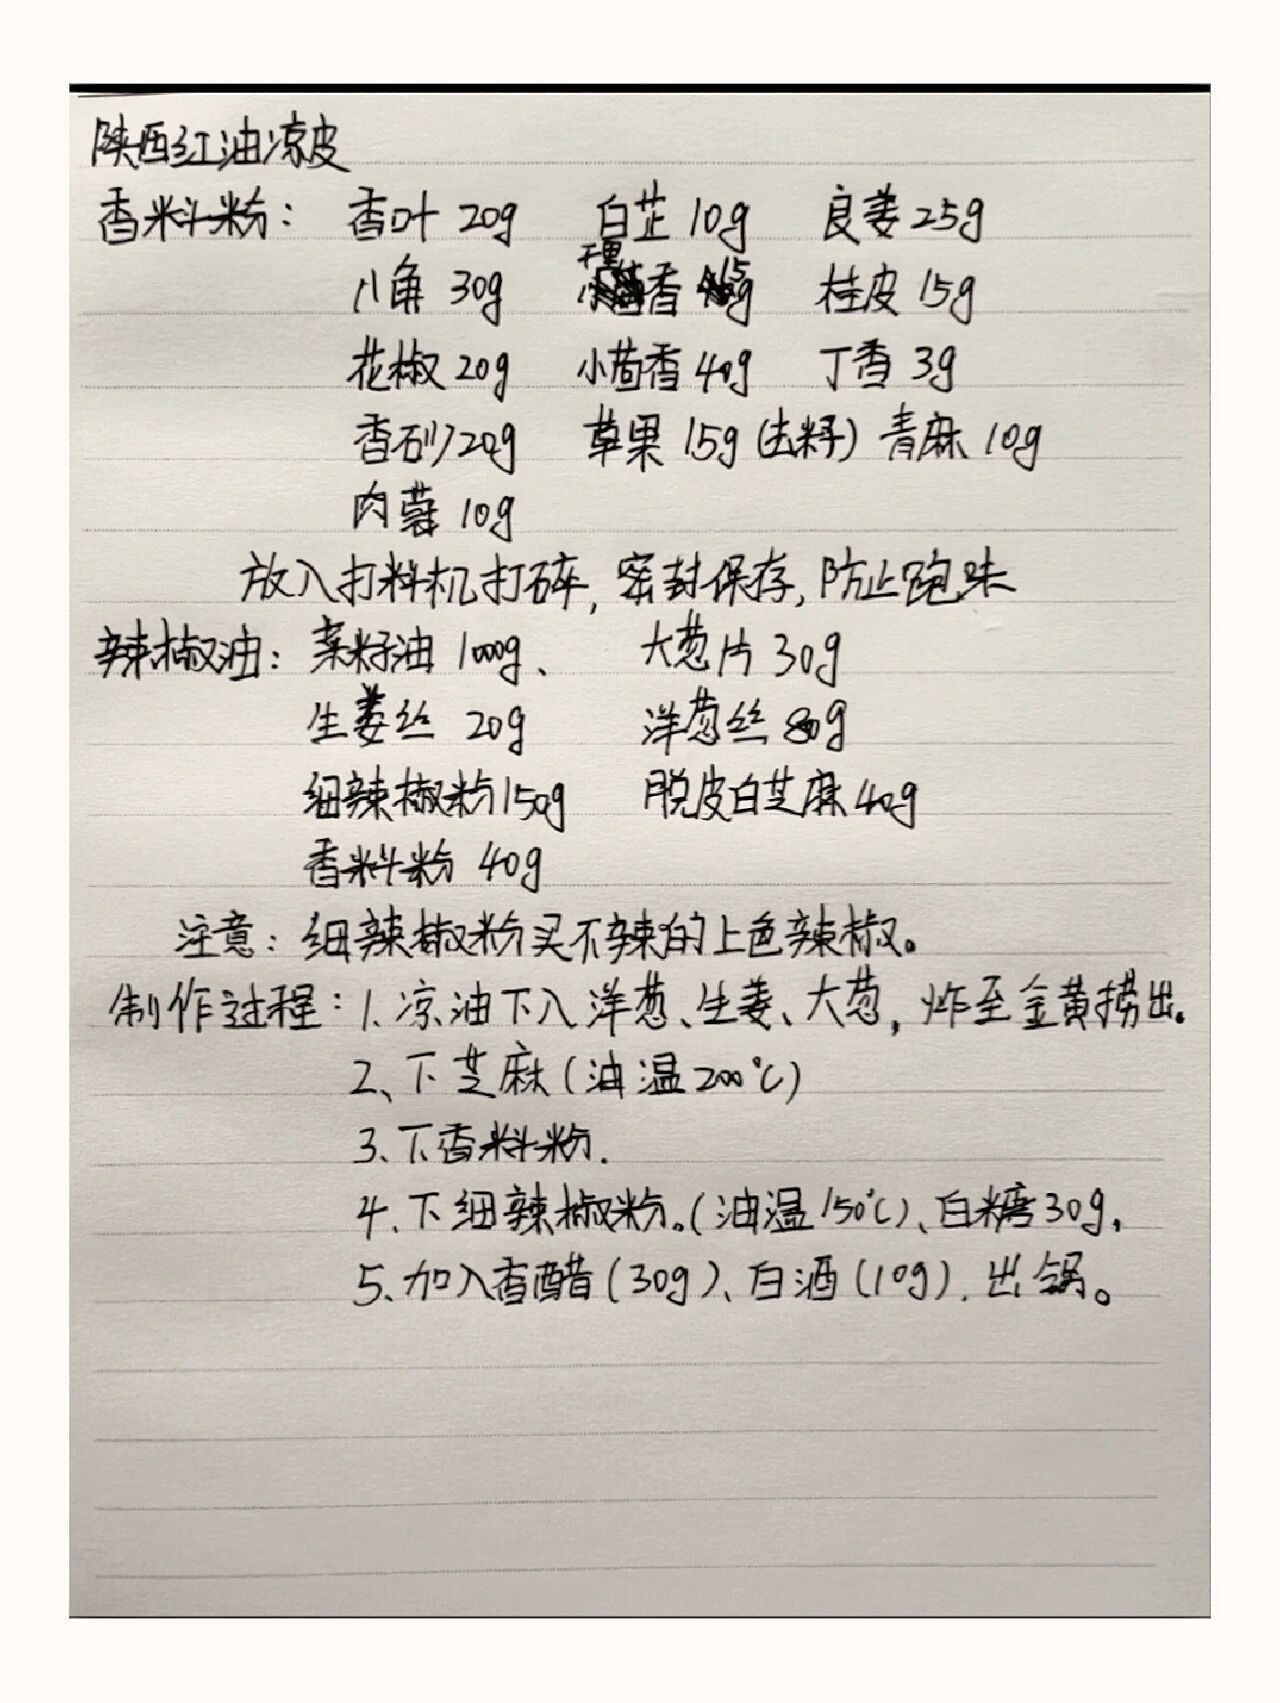 陕西红油凉皮
香料粉： 香叶 20g 白芷 10g 良姜 25g
八角 30g 千里香 15g 桂皮 15g
花椒 20g 小茴香 40g 丁香 3g
香砂 20g 草果 15g (去籽) 青麻 10g
肉蔻 10g
放入打料机打碎, 密封保存, 防止跑味
辣椒油: 菜籽油 1000g、 大葱片 30g
生姜丝 20g 洋葱丝 80g
细辣椒粉 150g 脱皮白芝麻 40g
香料粉 40g
注意: 细辣椒粉买不辣的上色辣椒。
制作过程: 1、凉油下入洋葱、生姜、大葱, 炸至金黄捞出。
2、下芝麻 (油温200℃)
3、下香料粉.
4、下细辣椒粉。(油温150℃)、白糖30g,
5、加入香醋 (30g)、白酒 (10g). 出锅。